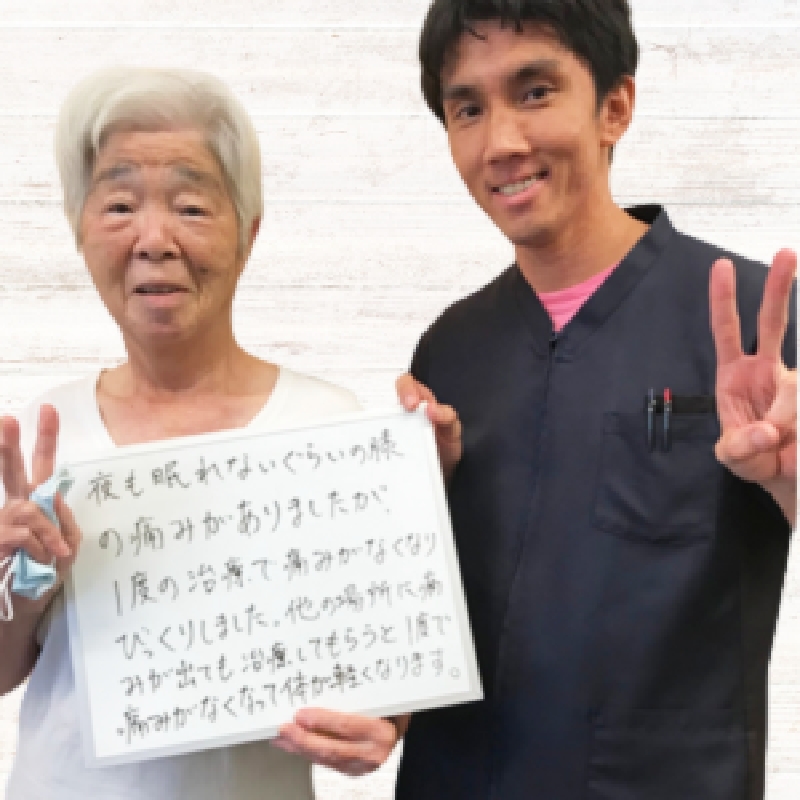 夜も眠れないぐらいの膝
の痛みがありましたが、
1度の治療で痛みがなくなり
びっくりしました。他の場所に痛
みが出ても治療してもらうと1度で
痛みがなくなって体が軽くなります。